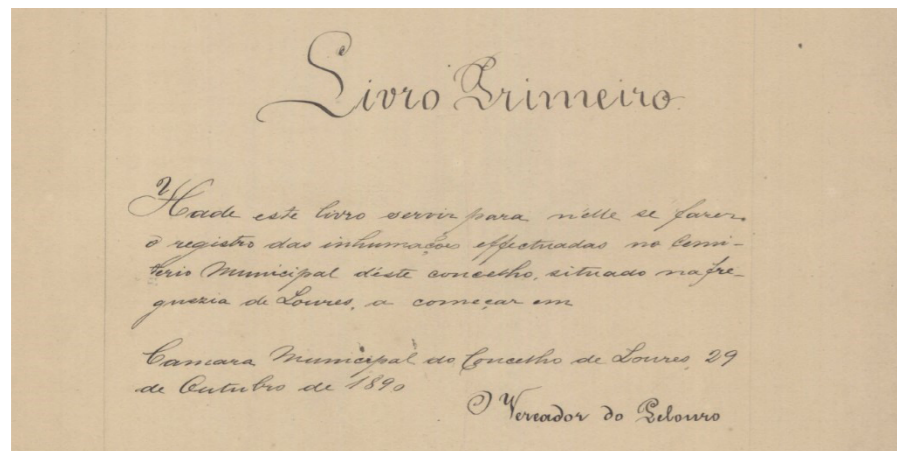 Livro Primeiro.
Hade este livro servir para n'elle se fazer
o registro das inhumações effectuadas no Cemi-
terio Municipal d'este concelho, situado na fre
guezia de Loures, a começar em
Camara Municipal do Concelho de Loures, 29
de Outubro de 1890
O Vereador do Pelouro